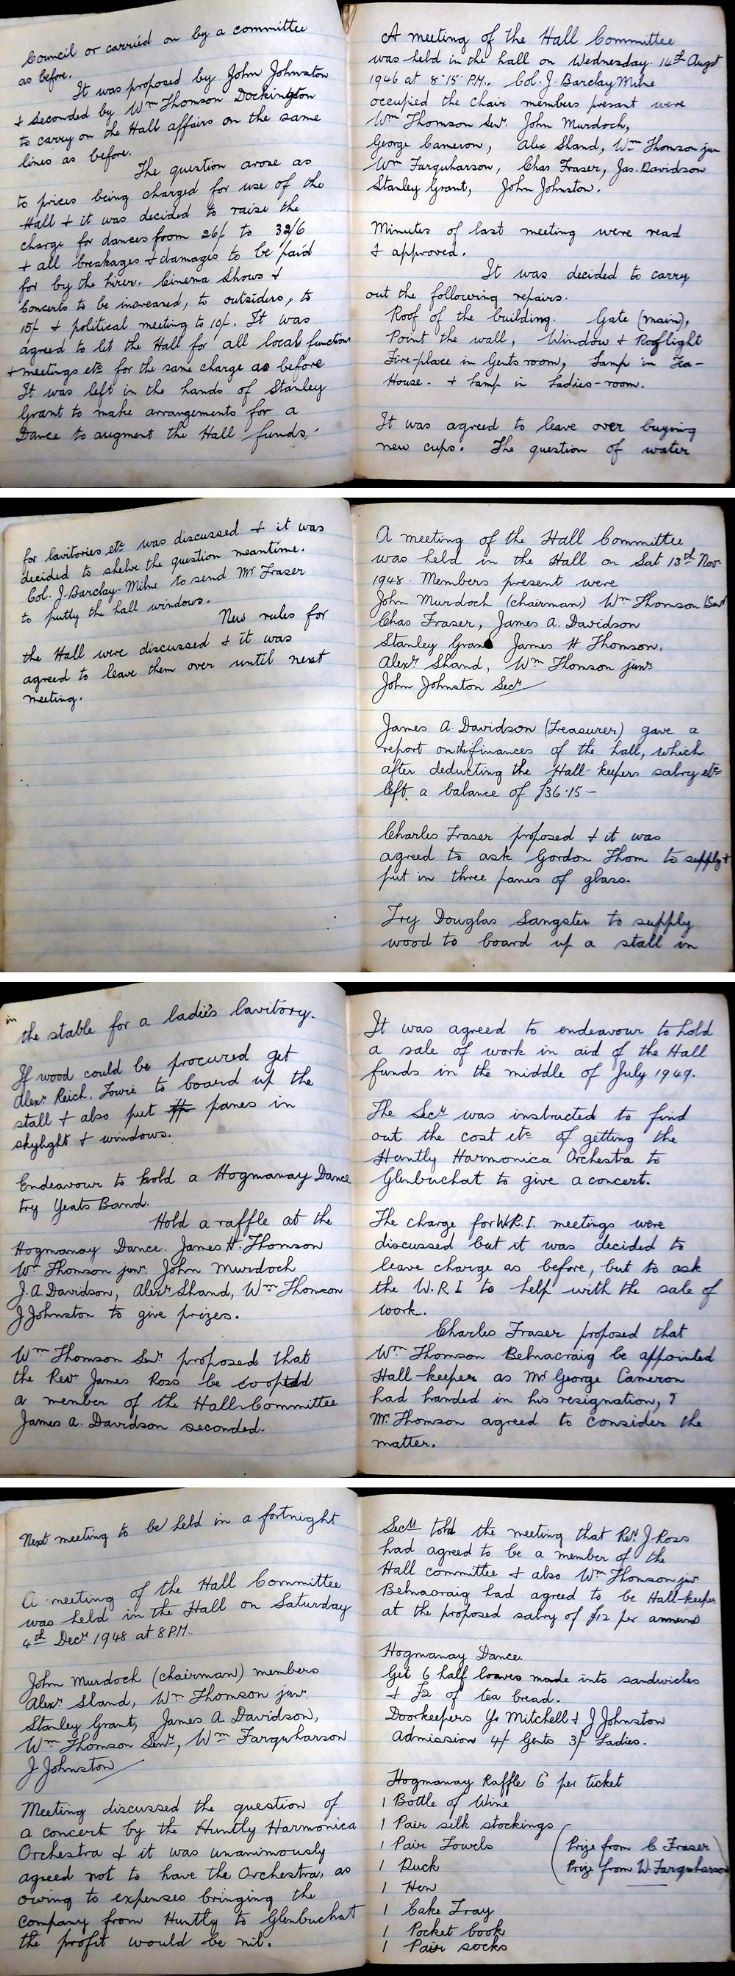 Council or carried on by a committee
as before.
It was proposed by John Johnston
& seconded by Wm Thomson Dockington
to carry on the Hall affairs on the same
lines as before.
The question arose as
to prices being charged for use of the
Hall & it was decided to raise the
charge for dances from 26/- to 32/6
& all breakages & damages to be paid
for by the hirer. Cinema Shows &
Concerts to be increased, to outsiders, to
15/- & political meeting to 10/-. It was
agreed to let the Hall for all local functions
& meetings etc for the same charge as before
It was left in the hands of Stanley
Grant to make arrangements for a
Dance to augment the Hall funds.
A meeting of the Hall Committee
was held in the hall on Wednesday 14th August
1946 at 8.15 P.M. Col. J. Barclay Milne
occupied the chair members present were
Wm Thomson Senr. John Murdoch,
George Cameron, Alex Shand, Wm Thomson jun
Wm Farquharson, Chas Fraser, Jas. Davidson
Stanley Grant, John Johnston.
Minutes of last meeting were read
& approved.
It was decided to carry
out the following repairs.
Roof of the building. Gate (main),
Point the wall, Window & Rooflight
Fire-place in Gents room, Lamp in Tea-
House. & lamp in Ladies-room.
It was agreed to leave over buying
new cups. The question of water
for lavitories etc was discussed & it was
decided to shelve the question meantime.
Col. J. Barclay-Milne to send Mr Fraser
to putty the hall windows.
New rules for
the Hall were discussed & it was
agreed to leave them over until next
meeting.
A meeting of the Hall Committee
was held in the Hall on Sat 13th Nov
1948. Members present were
John Murdoch (chairman) Wm Thomson Senr
Chas Fraser, James A. Davidson
Stanley Grant James H Thomson,
Alexr Shand, Wm Thomson junr
John Johnston Secy
James A Davidson (Treasurer) gave a
report on the finances of the hall, which
after deducting the Hall-keepers salry etc
left a balance of £36.15-
Charles Fraser proposed & it was
agreed to ask Gordon Thom to supply &
put in three panes of glass.
Try Douglas Sangster to supply
wood to board up a stall in
in the stable for a ladies lavitory.
If wood could be procured get
Alexr Reich, Towie to board up the
stall & also put panes in
skylight & windows.
Endeavour to hold a Hogmanay Dance
try Yeats Band.
Hold a raffle at the
Hogmanay Dance. James H. Thomson
Wm Thomson junr. John Murdoch
J.A Davidson, Alexr Shand, Wm Thomson
J Johnston to give prizes.
Wm Thomson Senr proposed that
the Revr James Ross be co-optdd
a member of the Hall Committee
James A. Davidson seconded.
It was agreed to endeavour to hold
a sale of work in aid of the Hall
funds in the middle of July 1949.
The Secy was instructed to find
out the cost etc of getting the
Huntly Harmonica Orchestra to
Glenbuchat to give a concert.
The charge for W.R.I. meetings were
discussed but it was decided to
leave charge as before, but to ask
the W.R.I to help with the sale of
work.
Charles Fraser proposed that
Wm Thomson Belnacraig be appointed
Hall-keeper as Mr George Cameron
had handed in his resignation, &
Mr. Thomson agreed to consider the
matter.
Next meeting to be held in a fortnight
A meeting of the Hall Committee
was held in the Hall on Saturday
4th Decr 1948 at 8 P.M.
John Murdoch (chairman) members
Alexr Shand, Wm Thomson junr
Stanley Grant, James A Davidson,
Wm Thomson Senr, Wm Farquharson
J Johnston
Meeting discussed the question of
a concert by the Huntly Harmonica
Orchestra & it was unanimously
agreed not to have the Orchestra, as
owing to expenses bringing the
company from Huntly to Glenbuchat
the profit would be nil.
Secy told the meeting that Revr J Ross
had agreed to be a member of the
Hall committee & also Wm Thomson jnr
Belnacraig had agreed to be Hall-keeper
at the proposed salry of £12 per annum
Hogmanay Dance.
Get 6 half loaves made into sandwiches
& £2 of tea bread.
Doorkeepers Mitchell & J Johnston
Admission 4/ Gents 3/ Ladies.
Hogmanay Raffle 6d per ticket
1 Bottle of Wine
1 Pair silk stockings
1 Pair Towels (Prize from C. Fraser)
1 Duck (Prize from W. Farquharson)
1 Hen
1 Cake Tray
1 Pocket book
1 Pair socks